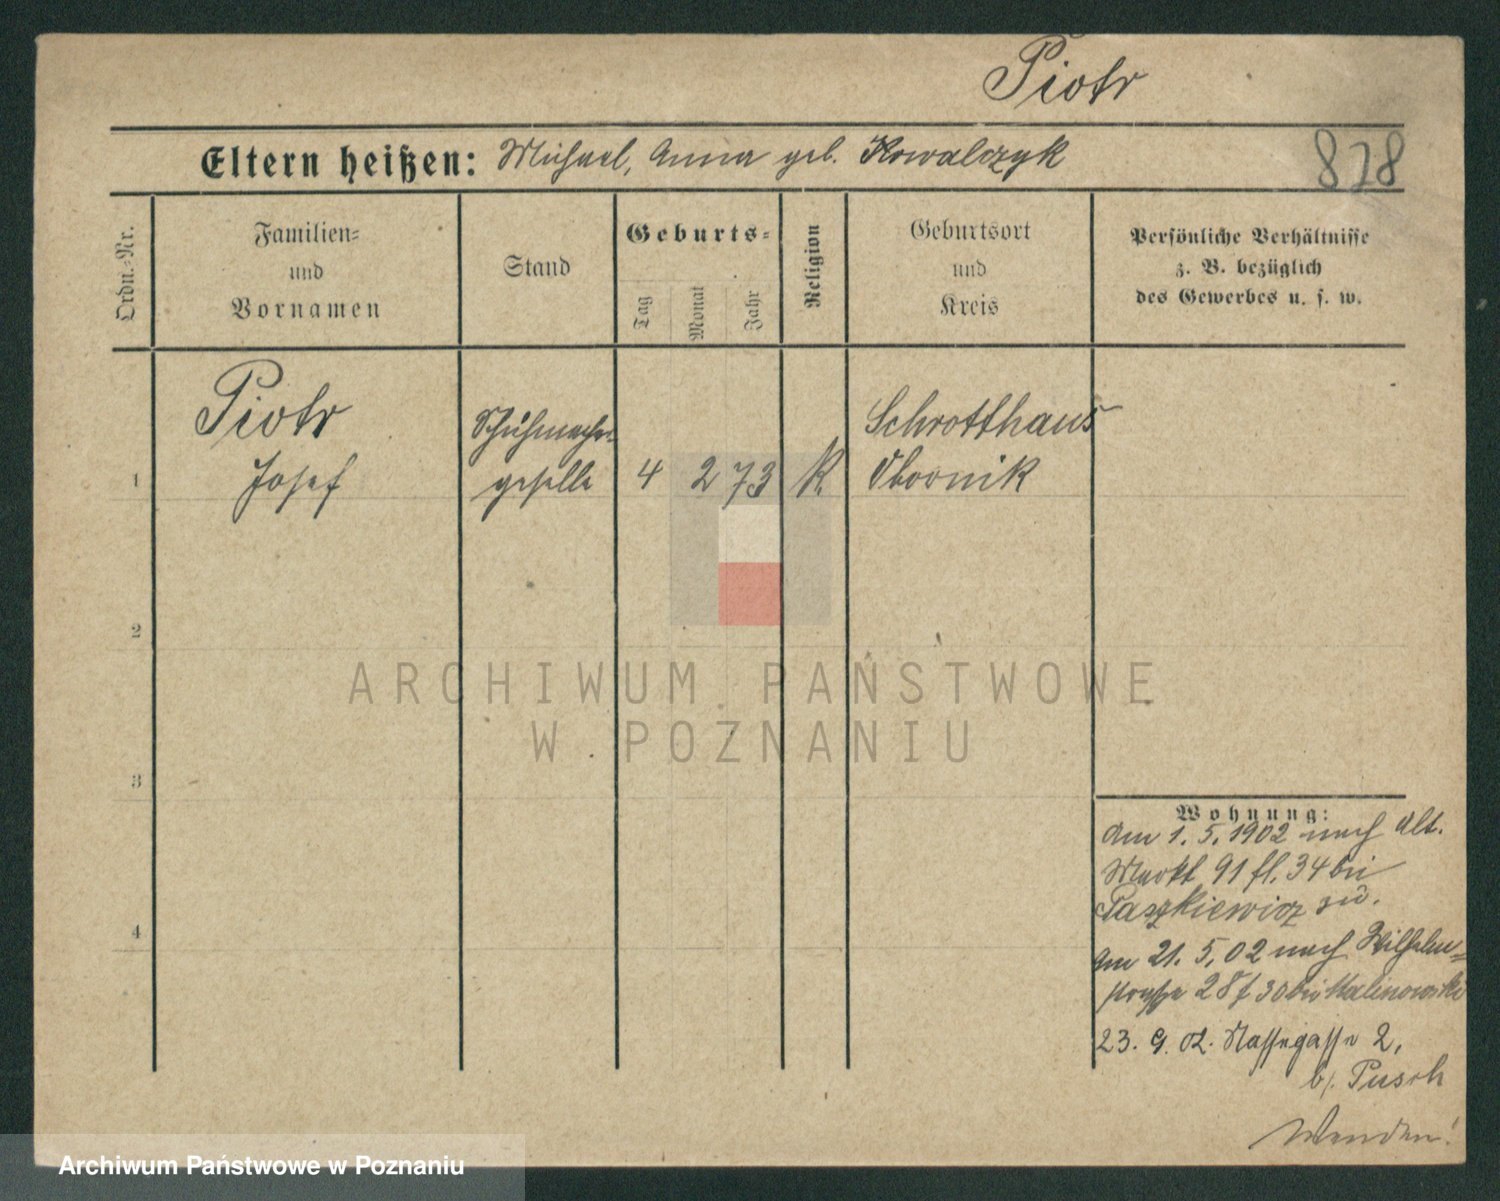 Piotr
Eltern heißen: Michael, Anna geb. Kowalczyk
828
Ordn.-Nr.
Familien-
und
Vornamen
Stand
Geburts-
Tag
Monat
Jahr
Religion
Geburtsort
und
Kreis
Persönliche Verhältnisse
z. B. bezüglich
des Gewerbes u. s. w.
1
Piotr
Josef
Schuhmacher
geselle
4 2 73
K.
Schrotthaus
Obornik
2
3
4
Wohnung:
Am 1. 5. 1902 nach Alt.
Markt 91 fl. 34 bei
Paszkiewicz
Am 21. 5. 02 nach Wilhelm-
straße 28 f 30 bei Malinowski
23. 9. 02. Nassegasse 2,
b/. Pusch
Wenden!
ARCHIWUM PAŃSTWOWE
W POZNANIU
Archiwum Państwowe w Poznaniu